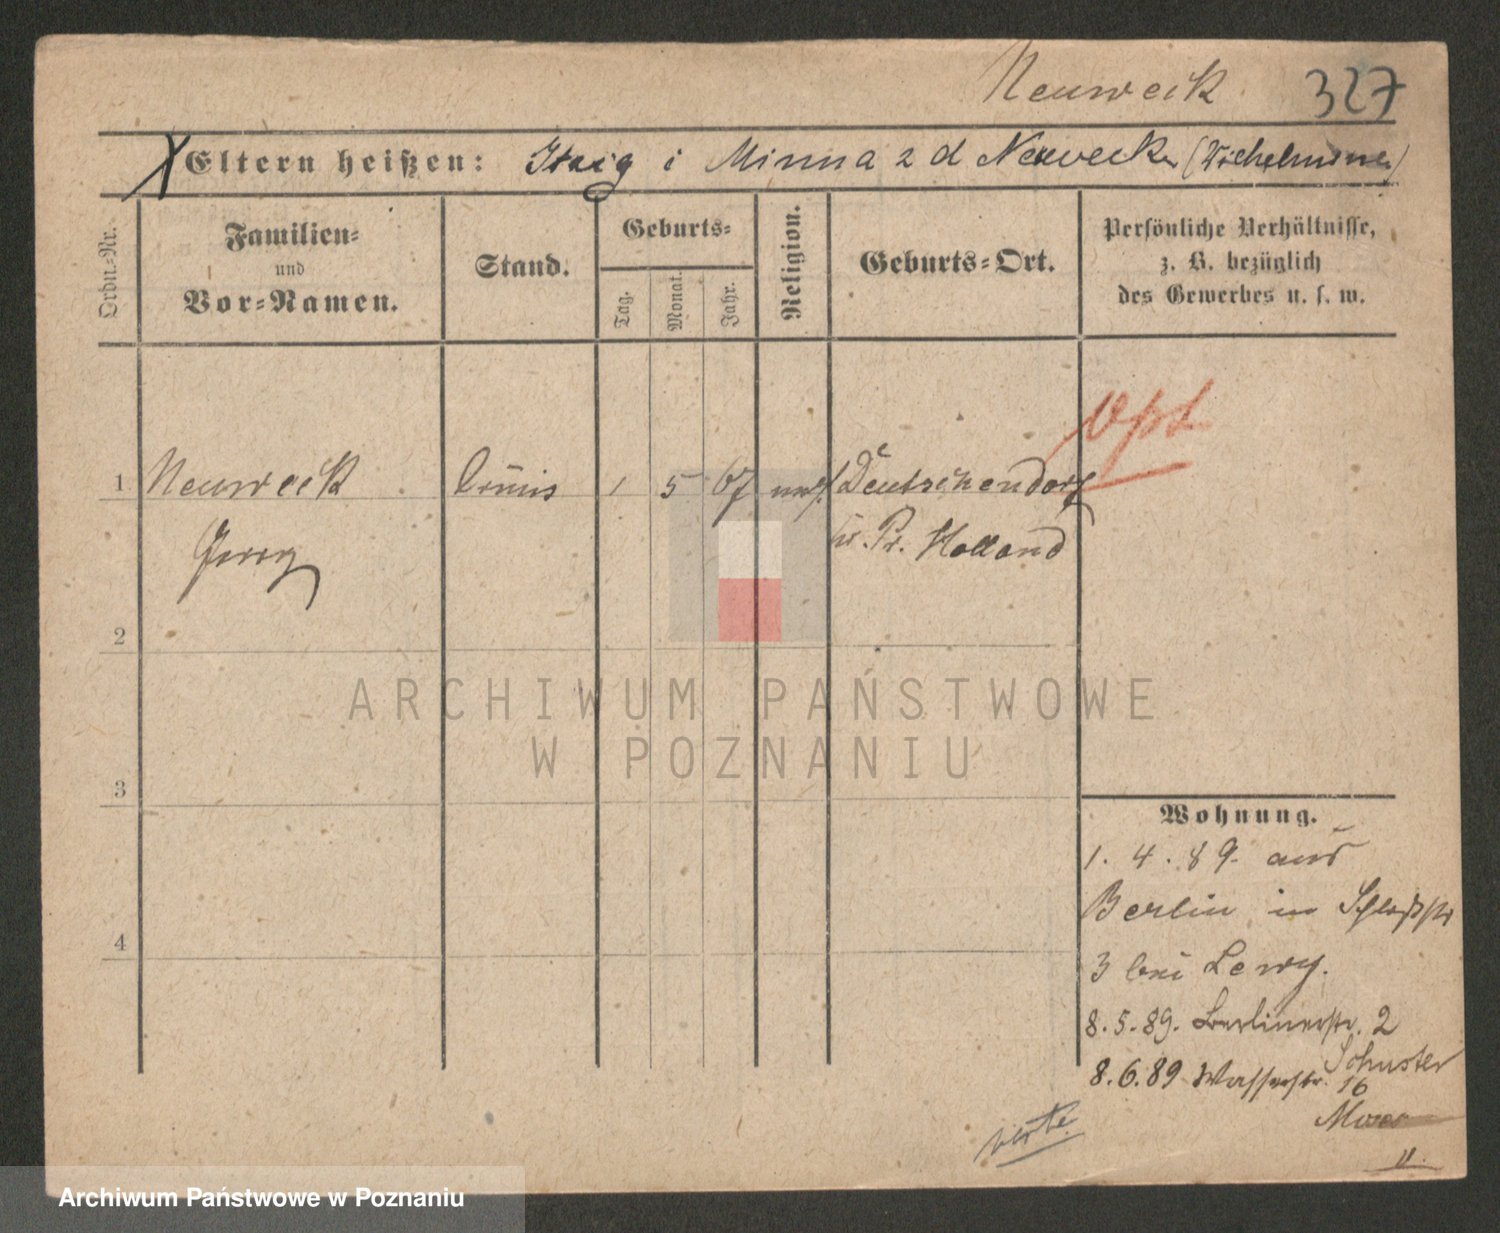 Neuweck 327
Eltern heißen: Itzig i Minna z d Neuweck (Wilhelmine)
Ordn.-Nr.
Familien-
und
Vor-Namen.
Stand.
Geburts-
Tag.
Monat.
Jahr.
Religion.
Geburts-Ort.
Persönliche Verhältnisse,
z. B. bezüglich
des Gewerbes u. s. w.
Opt
1 Neuweck 1 5 67 Deutschendorf
Georg Kr. Pr. Holland
2
3
4
Wohnung.
1. 4. 89. aus
Berlin in Schloßstr
3 bei Lewy.
8.5.89. Berlinerstr. 2
Schuster
8.6.89 Wasserstr. 16
Moses
verte
ARCHIWUM PAŃSTWOWE
W POZNANIU
Archiwum Państwowe w Poznaniu